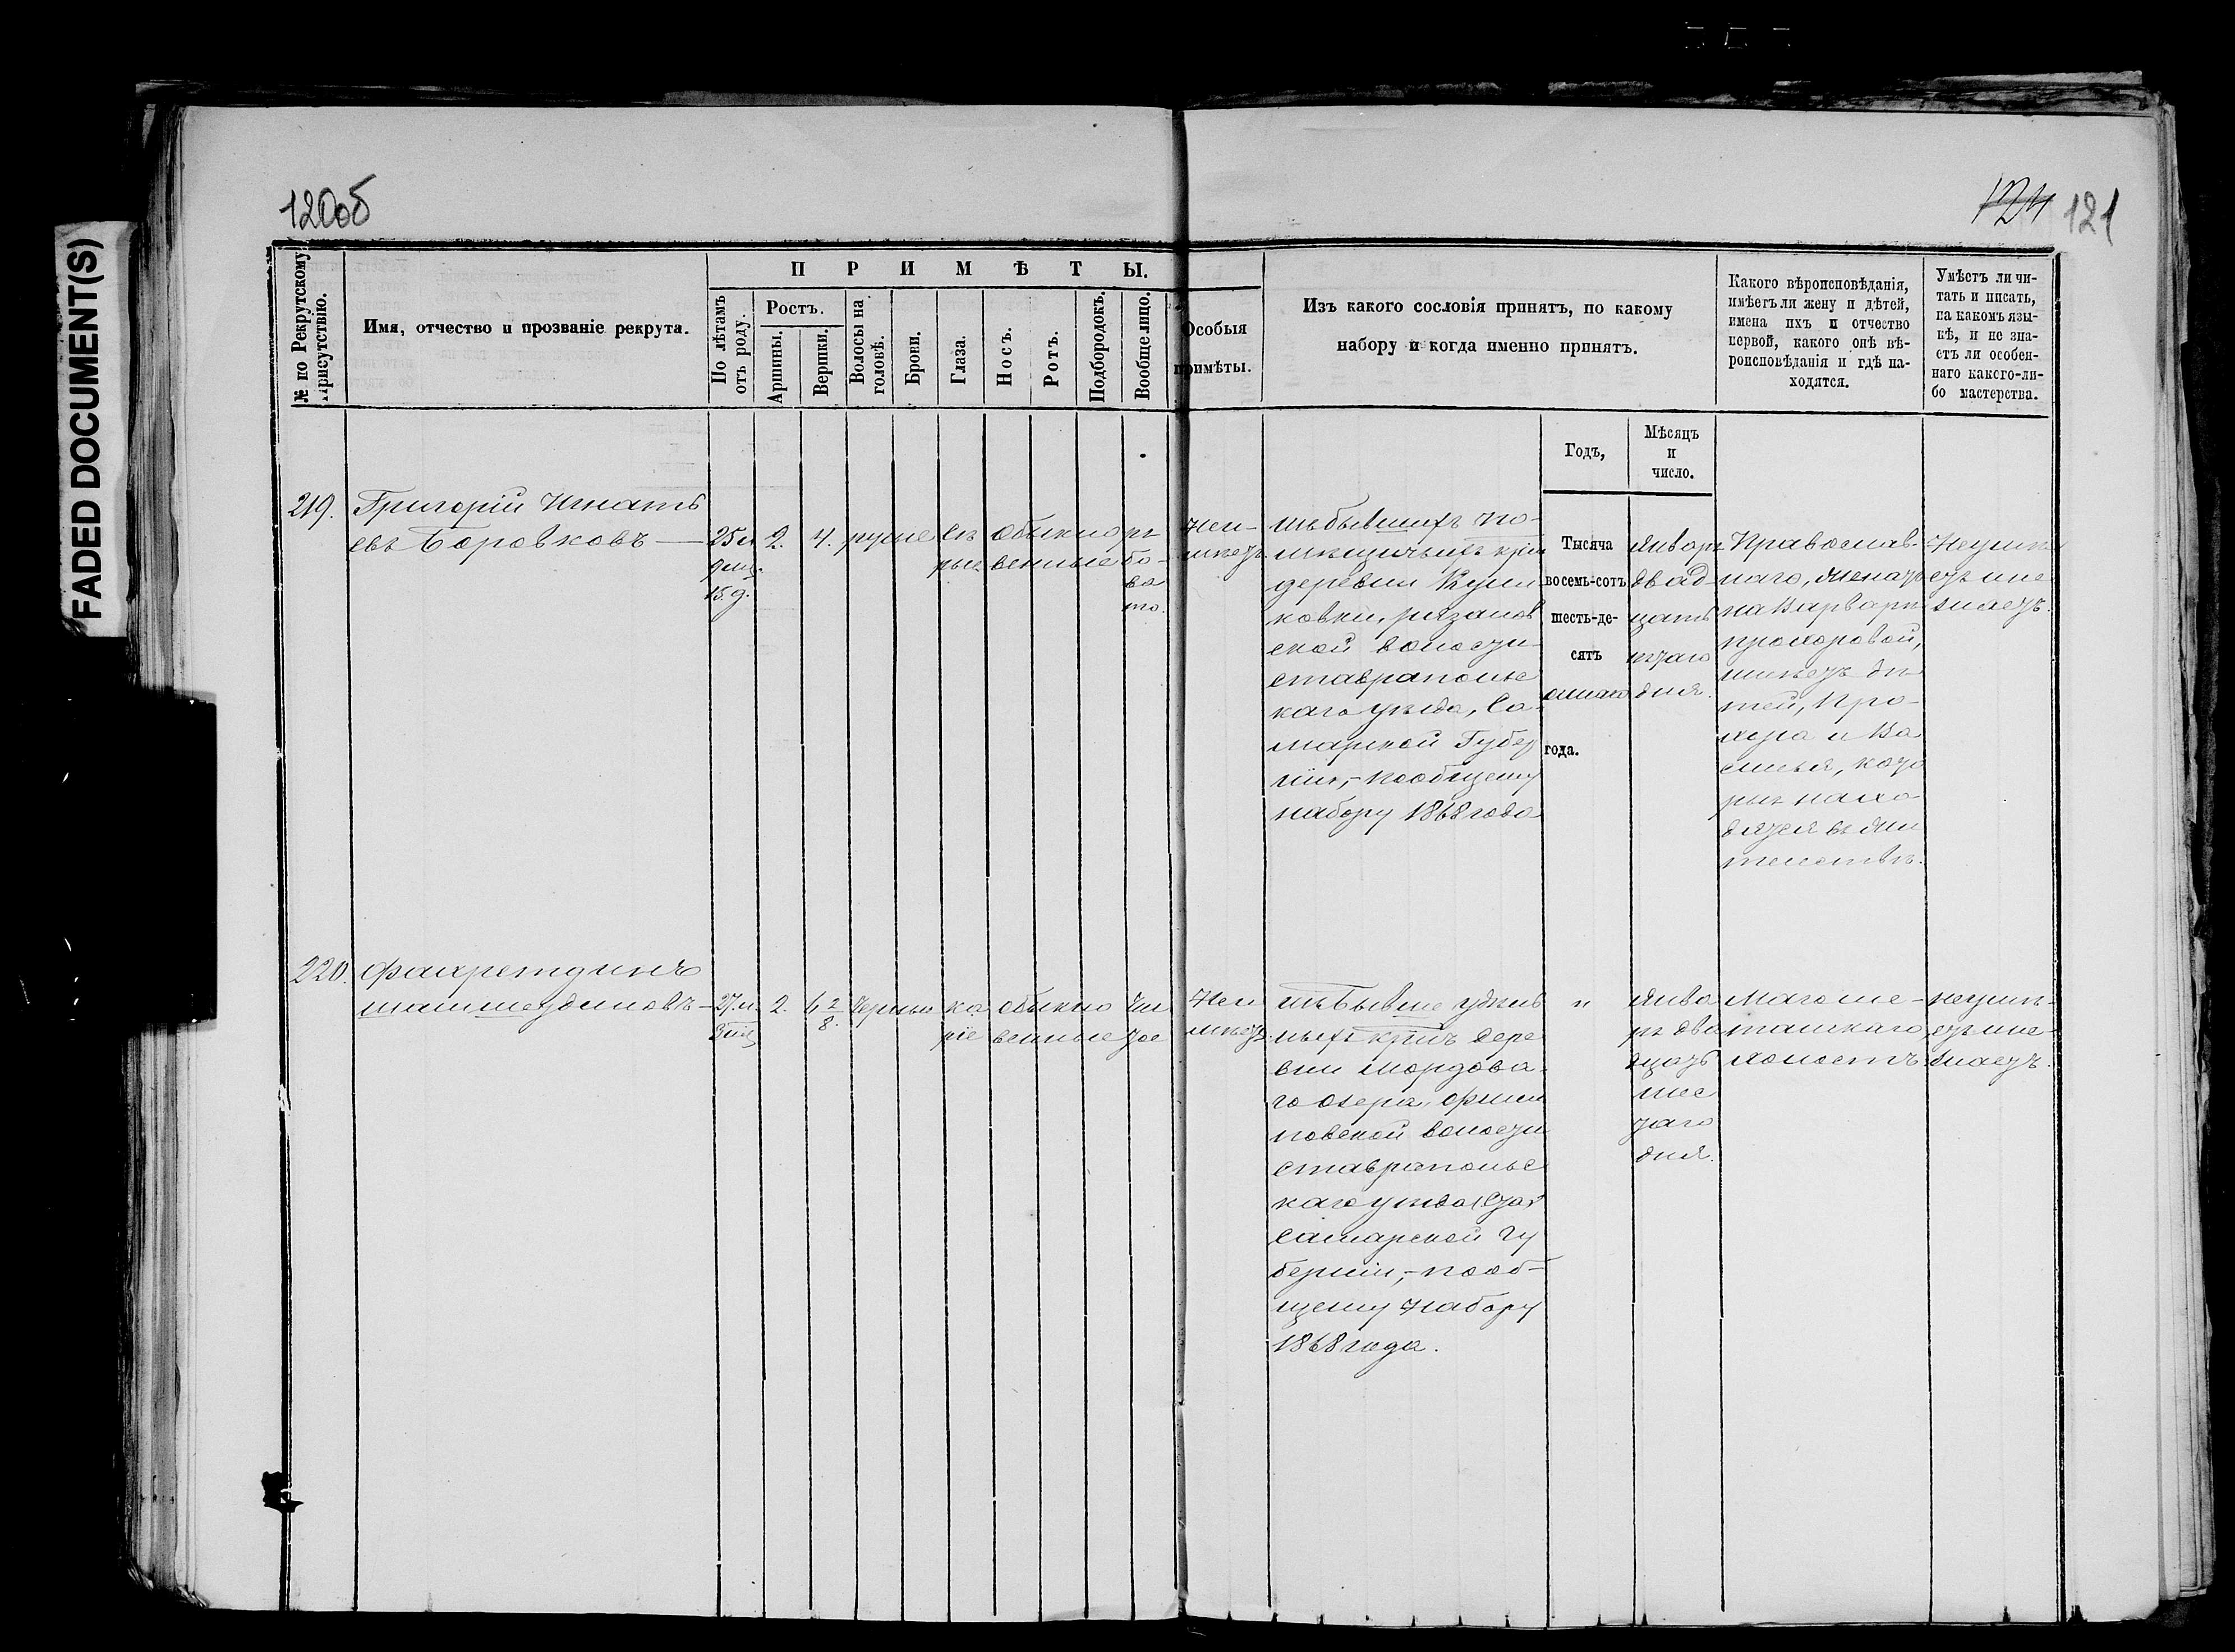 FADED DOCUMENT(S)
120об
124 121
№ по Рекрутскому Присутствію.
Имя, отчество и прозваніе рекрута.
П Р И М Ѣ Т Ы.
По лѣтамъ отъ роду.
Ростъ.
Аршины.
Вершки.
Волосы на головѣ.
Брови.
Глаза.
Носъ.
Ротъ.
Подбородокъ.
Вообще лицо.
Особыя
примѣты.
Изъ какого сословія принятъ, по какому
набору и когда именно принятъ.
Годъ,
Мѣсяцъ
и
число.
Какого вѣроисповѣданія,
имѣетъ ли жену и дѣтей,
имена ихъ и отчество
первой, какого онѣ вѣ-
роисповѣданія и гдѣ на-
ходятся.
Умѣетъ ли чи-
тать и писать,
на какомъ язы-
кѣ, и не зна-
етъ ли особен-
наго какого-ли-
бо мастерства.
219.
Григорій Игнать
евъ Боровковъ —
25 л
9 мц.
15. д.
2.
4.
русые
сѣ
рые
обыкно
венные
ря
бо-
ва
то.
Неи-
мѣетъ
изъ бывшихъ по-
мѣщичьихъ крін
деревни
ковки, рязанов
ской волости
ставрапольс
каго уѣзда, Са-
марской Губер
ніи,- пообщему
набору 1868 года
Тысяча
восемь-сотъ
шесть-де-
сятъ
года.
Января
двад-
цать
пятаго
дня.
Православ-
наго, женатъ
на Варварѣ
прохоровой,
имѣетъ дѣ-
тей, Про-
хора и Ва
силья, кото
рые нахо-
дятся въ жи
тельствѣ.
Неумѣ
етъ ине
знаетъ.
220.
Фахретдинъ
шамшетдиновъ —
27 л.
3 мц
2.
6 2/8.
черные
ка
ріе
обыкно
венные
чи
тое
Неи
мѣетъ
изъ бывше удѣль
ныхъ крнъ дере
вни Мордова-
го озера,
повской волости
ставрапольс
каго уѣзда
самарской гу
берніи,- пооб-
щему набору
1868 года.
"
Янва
ря два
дцать
шес
таго
дня.
Магоме-
танскаго,
холостъ.
неумѣ-
етъ ине-
знаетъ.